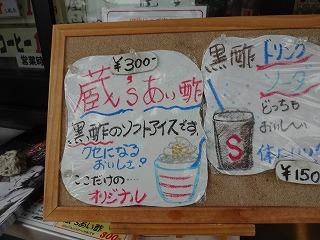 コーヒー
営業時
¥300
蔵'sあい酢
黒酢のソフトアイスです。
クセになる
おいしさ?
ここだけの…
オリジナル
黒酢ドリンク
ソーダ
どっちも
おいしい
体にいい!
S
¥150
蔵'sあい酢
300